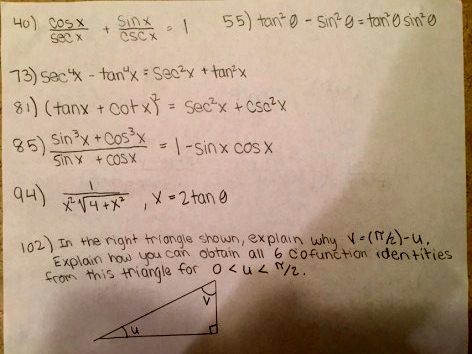 40) cos x / sec x + sin x / csc x = 1 55) tan²θ - sin²θ = tan²θ sin²θ
73) sec⁴x - tan⁴x = sec²x + tan²x
81) (tanx + cotx)² = sec²x + csc²x
85) sin³x + cos³x / sinx + cosx = 1-sinx cosx
94) 1 / x²√4+x² , x = 2tanθ
102) In the right triangle shown, explain why v=(π/2)-u.
Explain how you can obtain all 6 cofunction identities
from this triangle for 0<u<π/2.
v
u